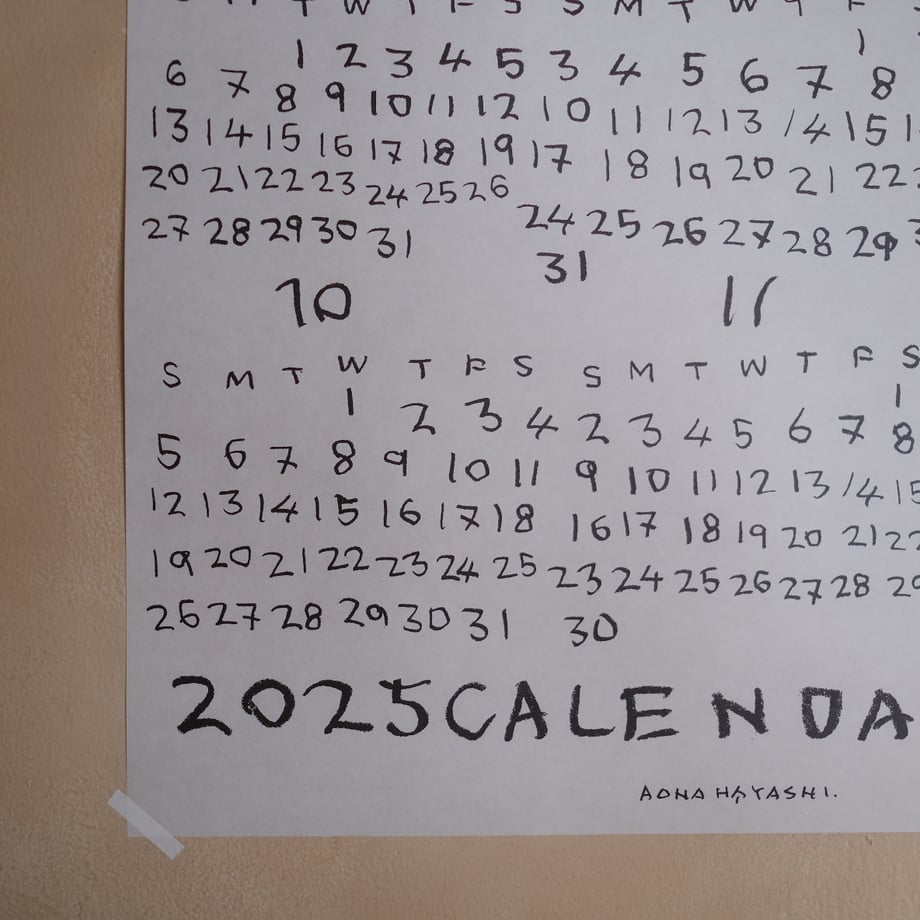 T W T F S S M T W T F
1 2 3 4 5 1
6 7 8 9 10 11 12 3 4 5 6 7 8
13 14 15 16 17 18 19 10 11 12 13 14 15
20 21 22 23 24 25 26 17 18 19 20 21 22
27 28 29 30 31 24 25 26 27 28 29
31
10 11
S M T W T F S S M T W T F S
1 2 3 4 1
5 6 7 8 9 10 11 2 3 4 5 6 7 8
12 13 14 15 16 17 18 9 10 11 12 13 14 15
19 20 21 22 23 24 25 16 17 18 19 20 21 22
26 27 28 29 30 31 23 24 25 26 27 28 29
30
2025 CALENDA
AONA HAYASHI.